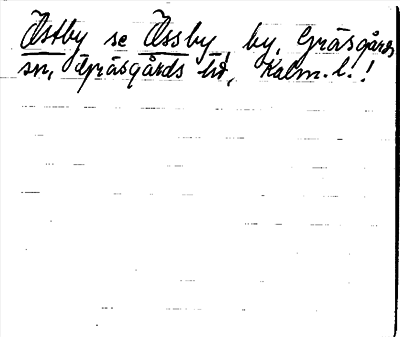 Östby se Össby, by, Gräsgårds
sn, Gräsgårds hd, Kalm. l.!